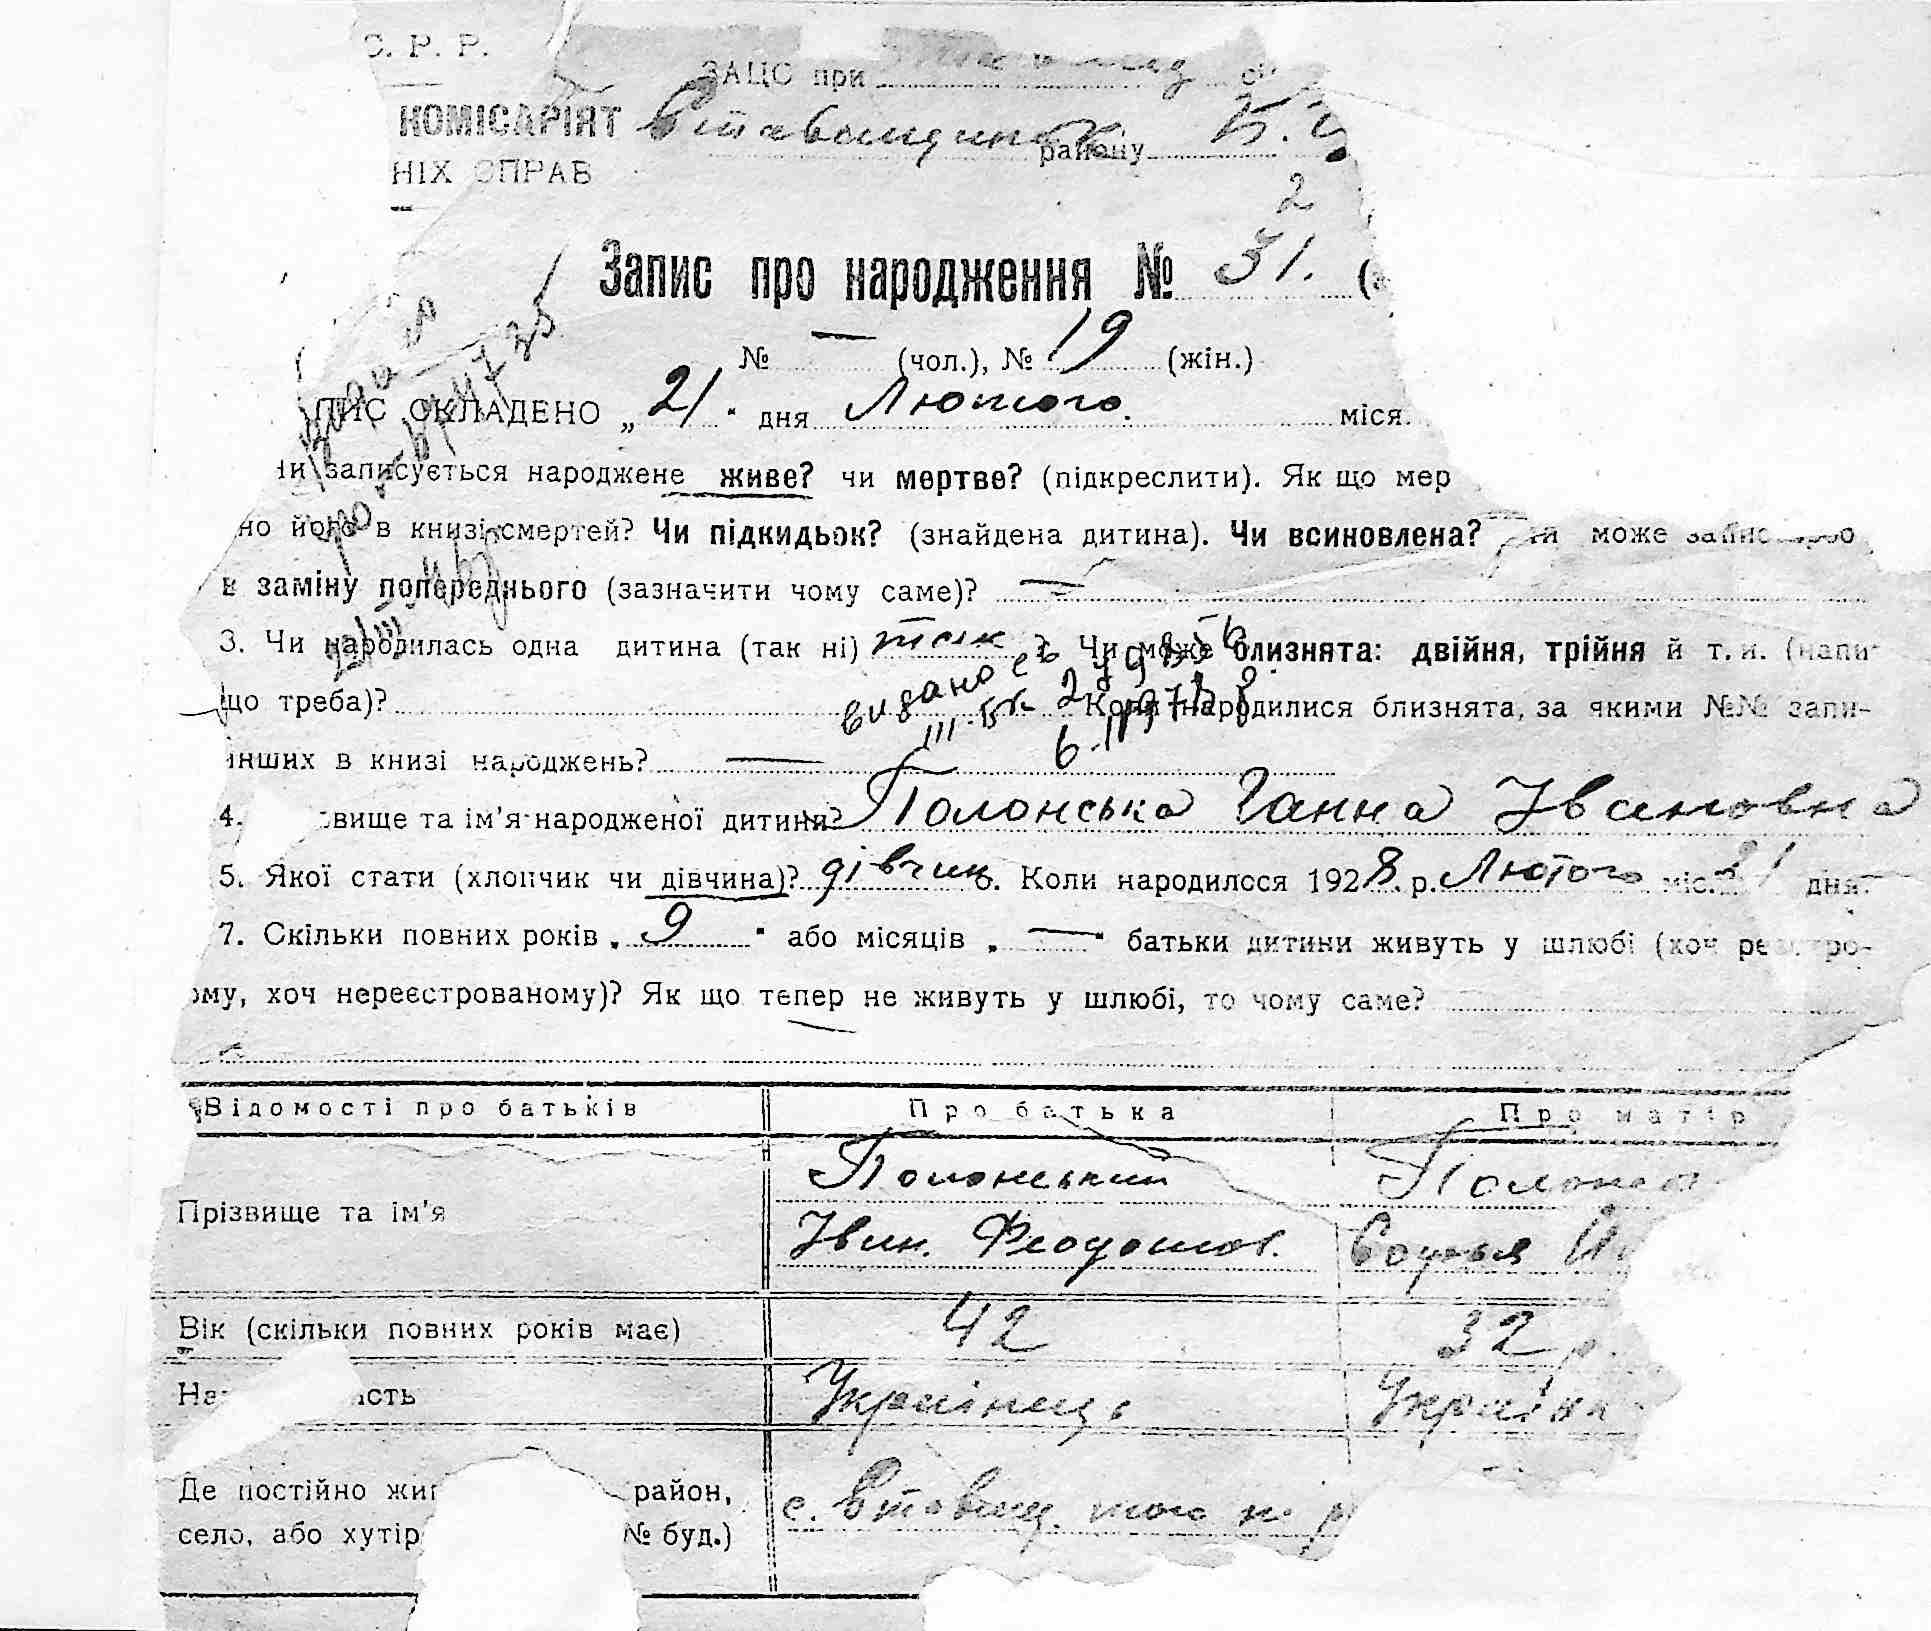 С. Р. Р.
ЗАЦС при
КОМІСАРІЯТ
району Б.
НІХ СПРАВ
2
Запис про народження № 31.
№ — (чол.), № 19 (жін.)
ПИС СКЛАДЕНО „21" дня Лютого. міся
чи записується народжене живе? чи мертве? (підкреслити). Як що мер
но його в книзі смертей? Чи підкидьок? (знайдена дитина). Чи всиновлена? може
в заміну попереднього (зазначити чому саме)? —
3. Чи народилась одна дитина (так ні) так ? Чи може близнята: двійня, трійня й т. и. (напи
видано
що треба)? Коли народилися близнята, за якими №№ запи-
інших в книзі народжень? —
4. звище та ім'я народженої дитини? Полонська Ганна Івановна
5. Якої стати (хлопчик чи дівчина)? дівчин. 6. Коли народилося 1928 р. Лютого міс. 21 дня.
7. Скільки повних років „ 9 " або місяців „ — " батьки дитини живуть у шлюбі (хоч реєстро-
ому, хоч нереєстрованому)? Як що тепер не живуть у шлюбі, то чому саме?
—
Відомості про батьків Про батька Про матір
Прізвище та ім'я
Полонський Полонс
Іван. Феодосіов. Софья
Вік (скільки повних років має) 42 32 р.
На ість Українець Українк
Де постійно жив район,
село, або хутір № буд.)
с.